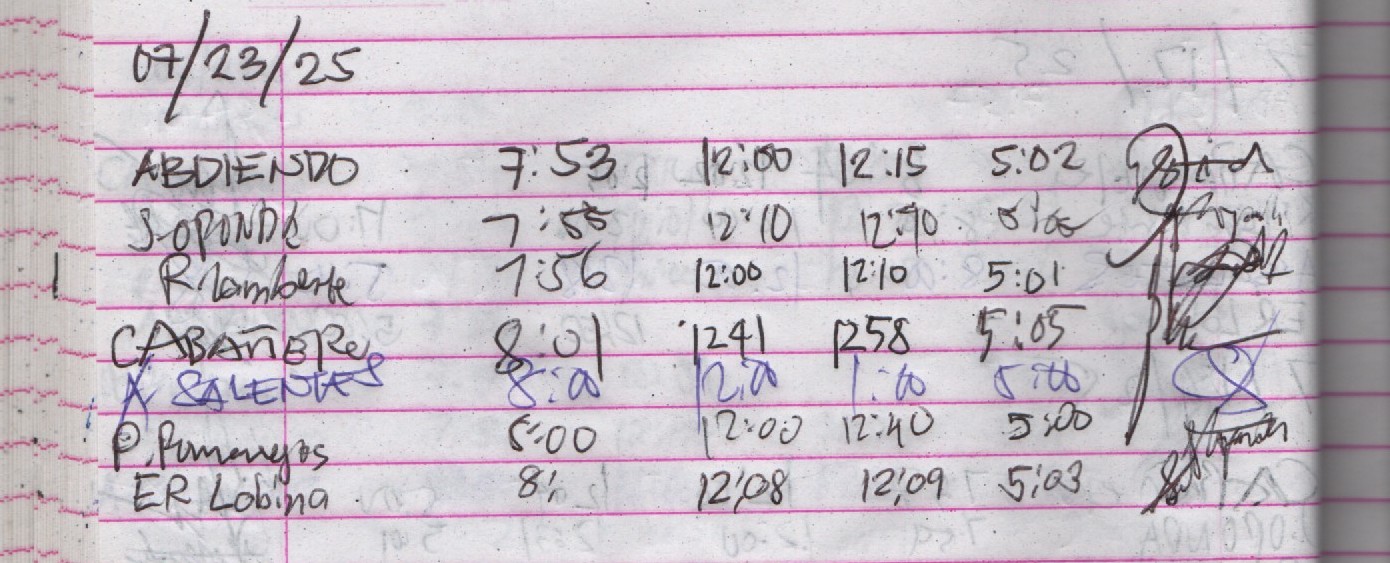 07/23/25
ABDIENDO 7:53 12:00 12:15 5:02
J.OPONDA 7:55 12:10 12:40
R. 7:56 12:00 12:10 5:01
CABAÑERO 8:01 1241 1258 5:05
A SALENTES 8:00 12:00 1:00 5:00
P. 12:00 12:40 5:00
ER Lobina 12:08 12:09 5:03